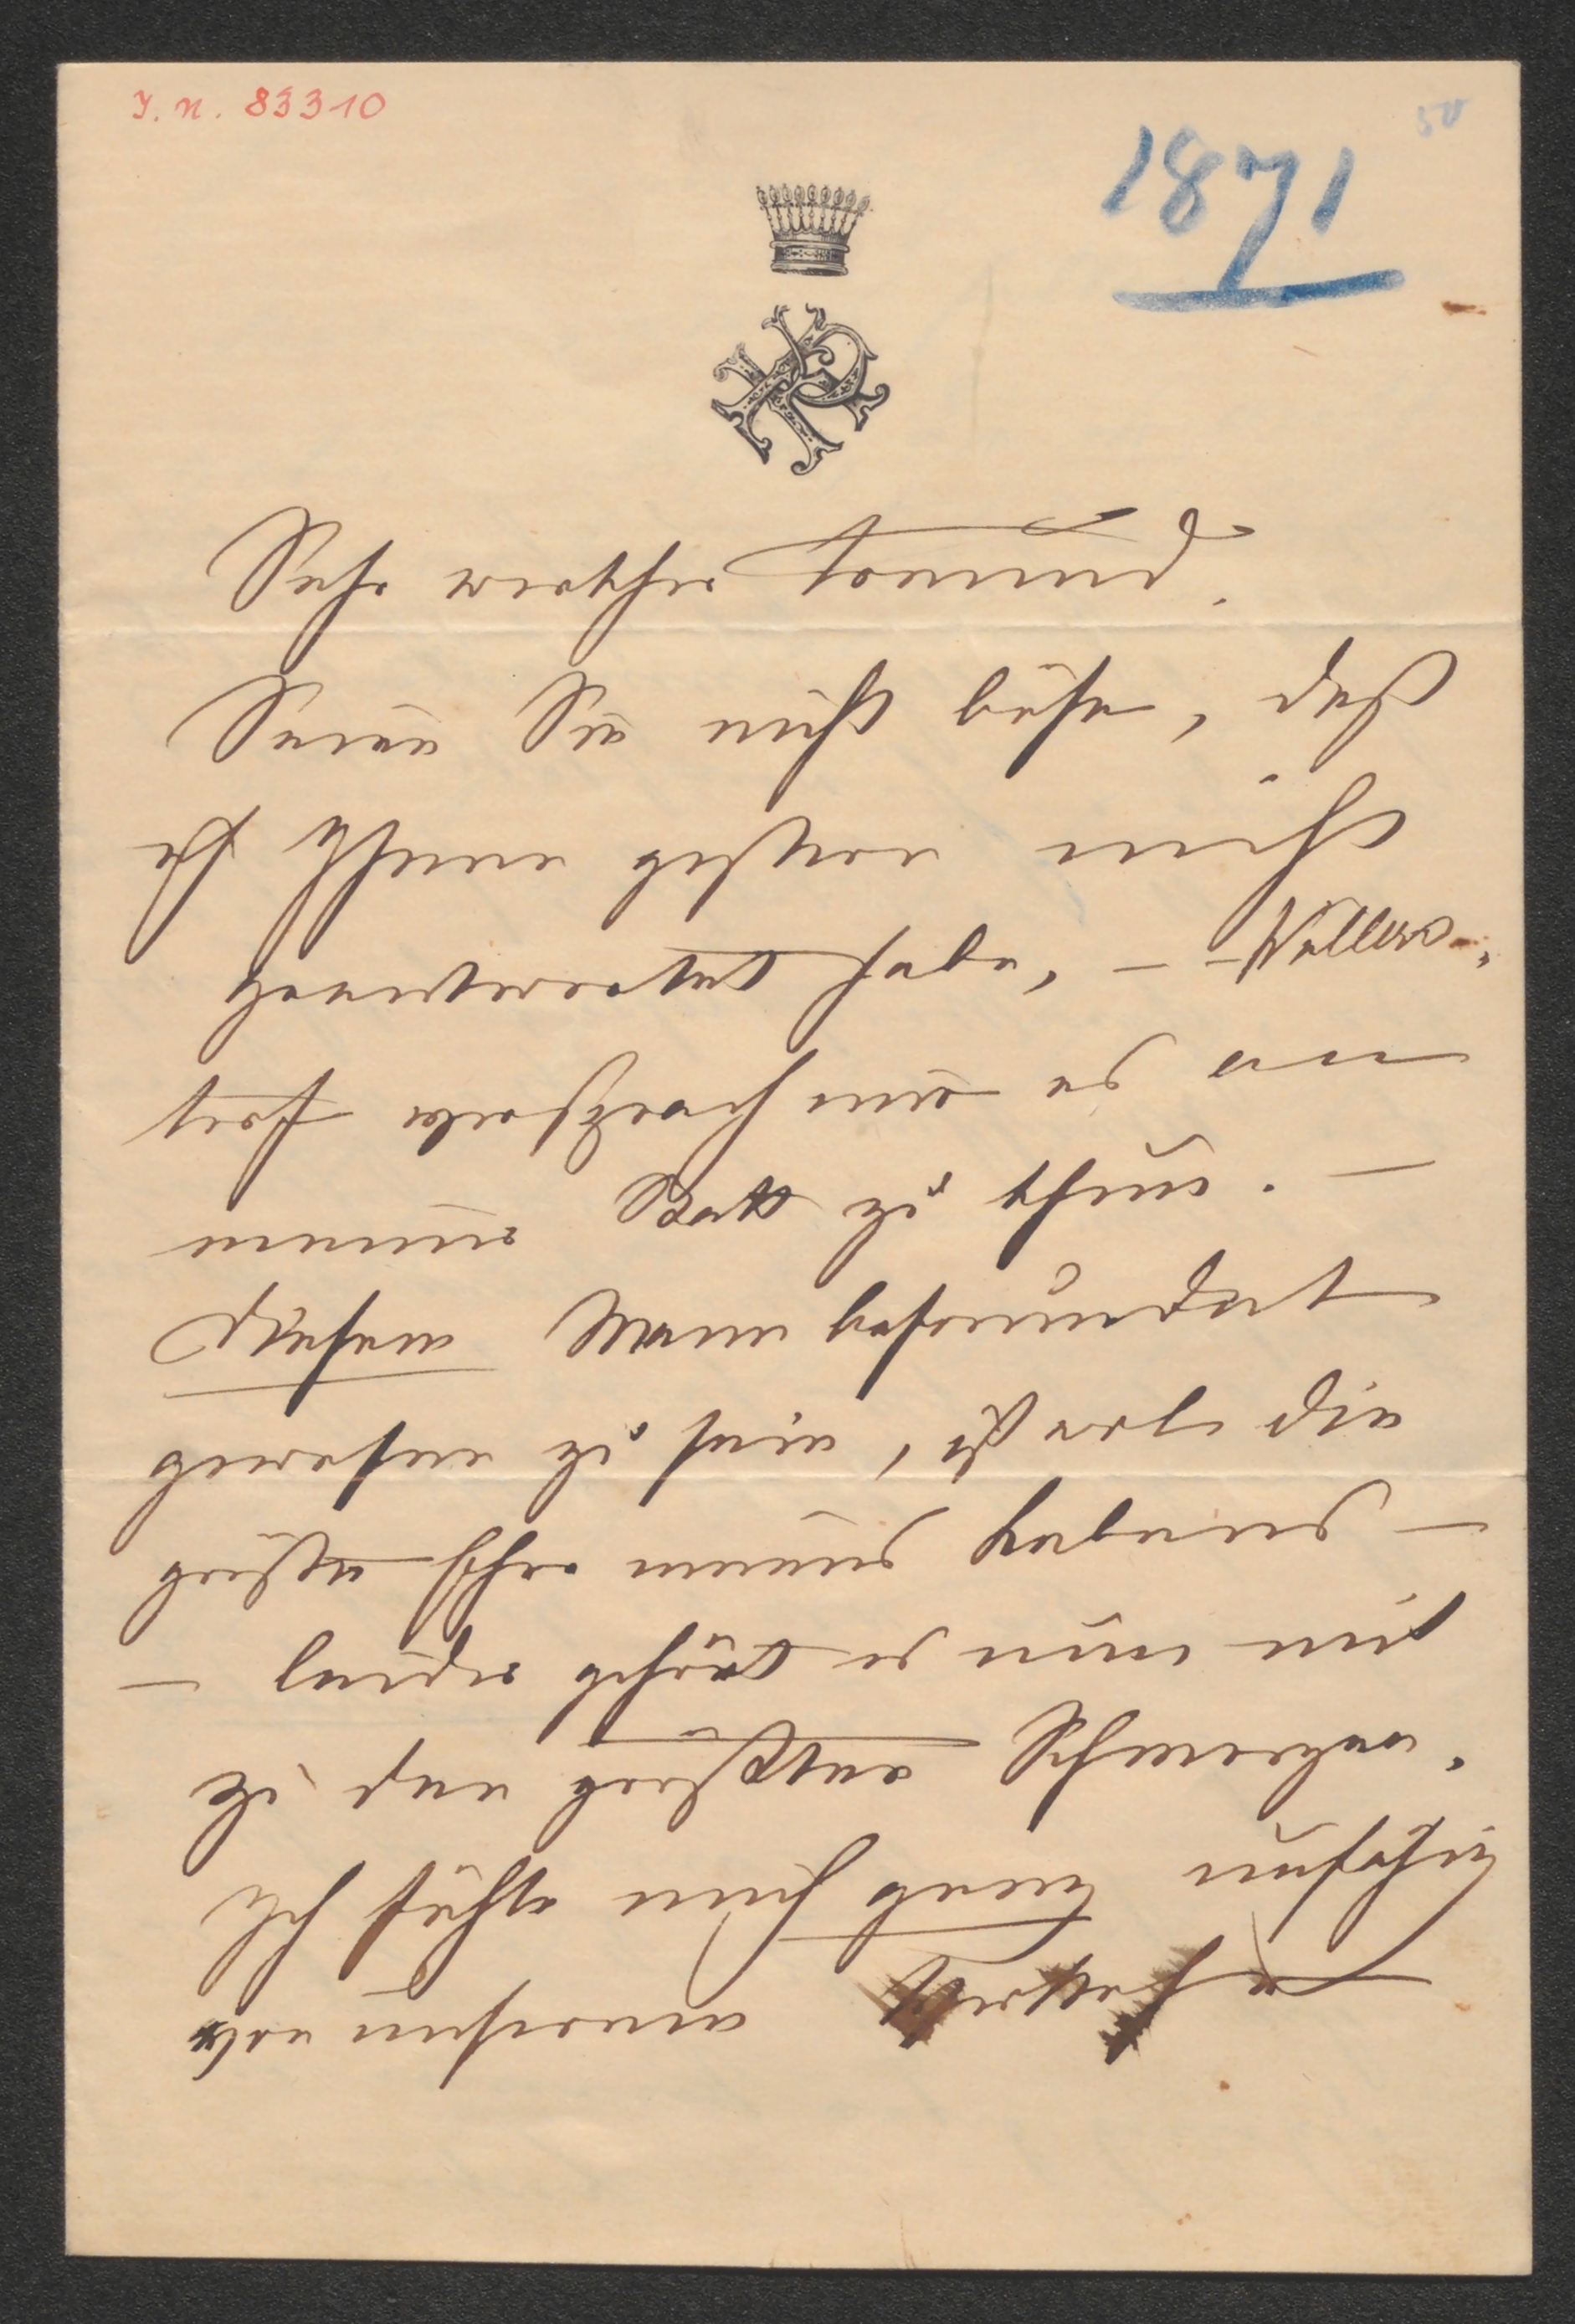 I. N. 83310
50
1871
Sehr werther Freund.
Seien Sie nicht böse, daß
ich Ihnen gestern nicht
geantwortet habe, – – Wallers-
versprach mir es an
meiner Statt zu thun. –
Diesem Mann befreundet
gewesen zu sein, ist wol die
größte Ehre meines Lebens –
– leider gehört es nun mit
zu den größten Schmerzen.
Ich fühle mich ganz unfähig
von unserem